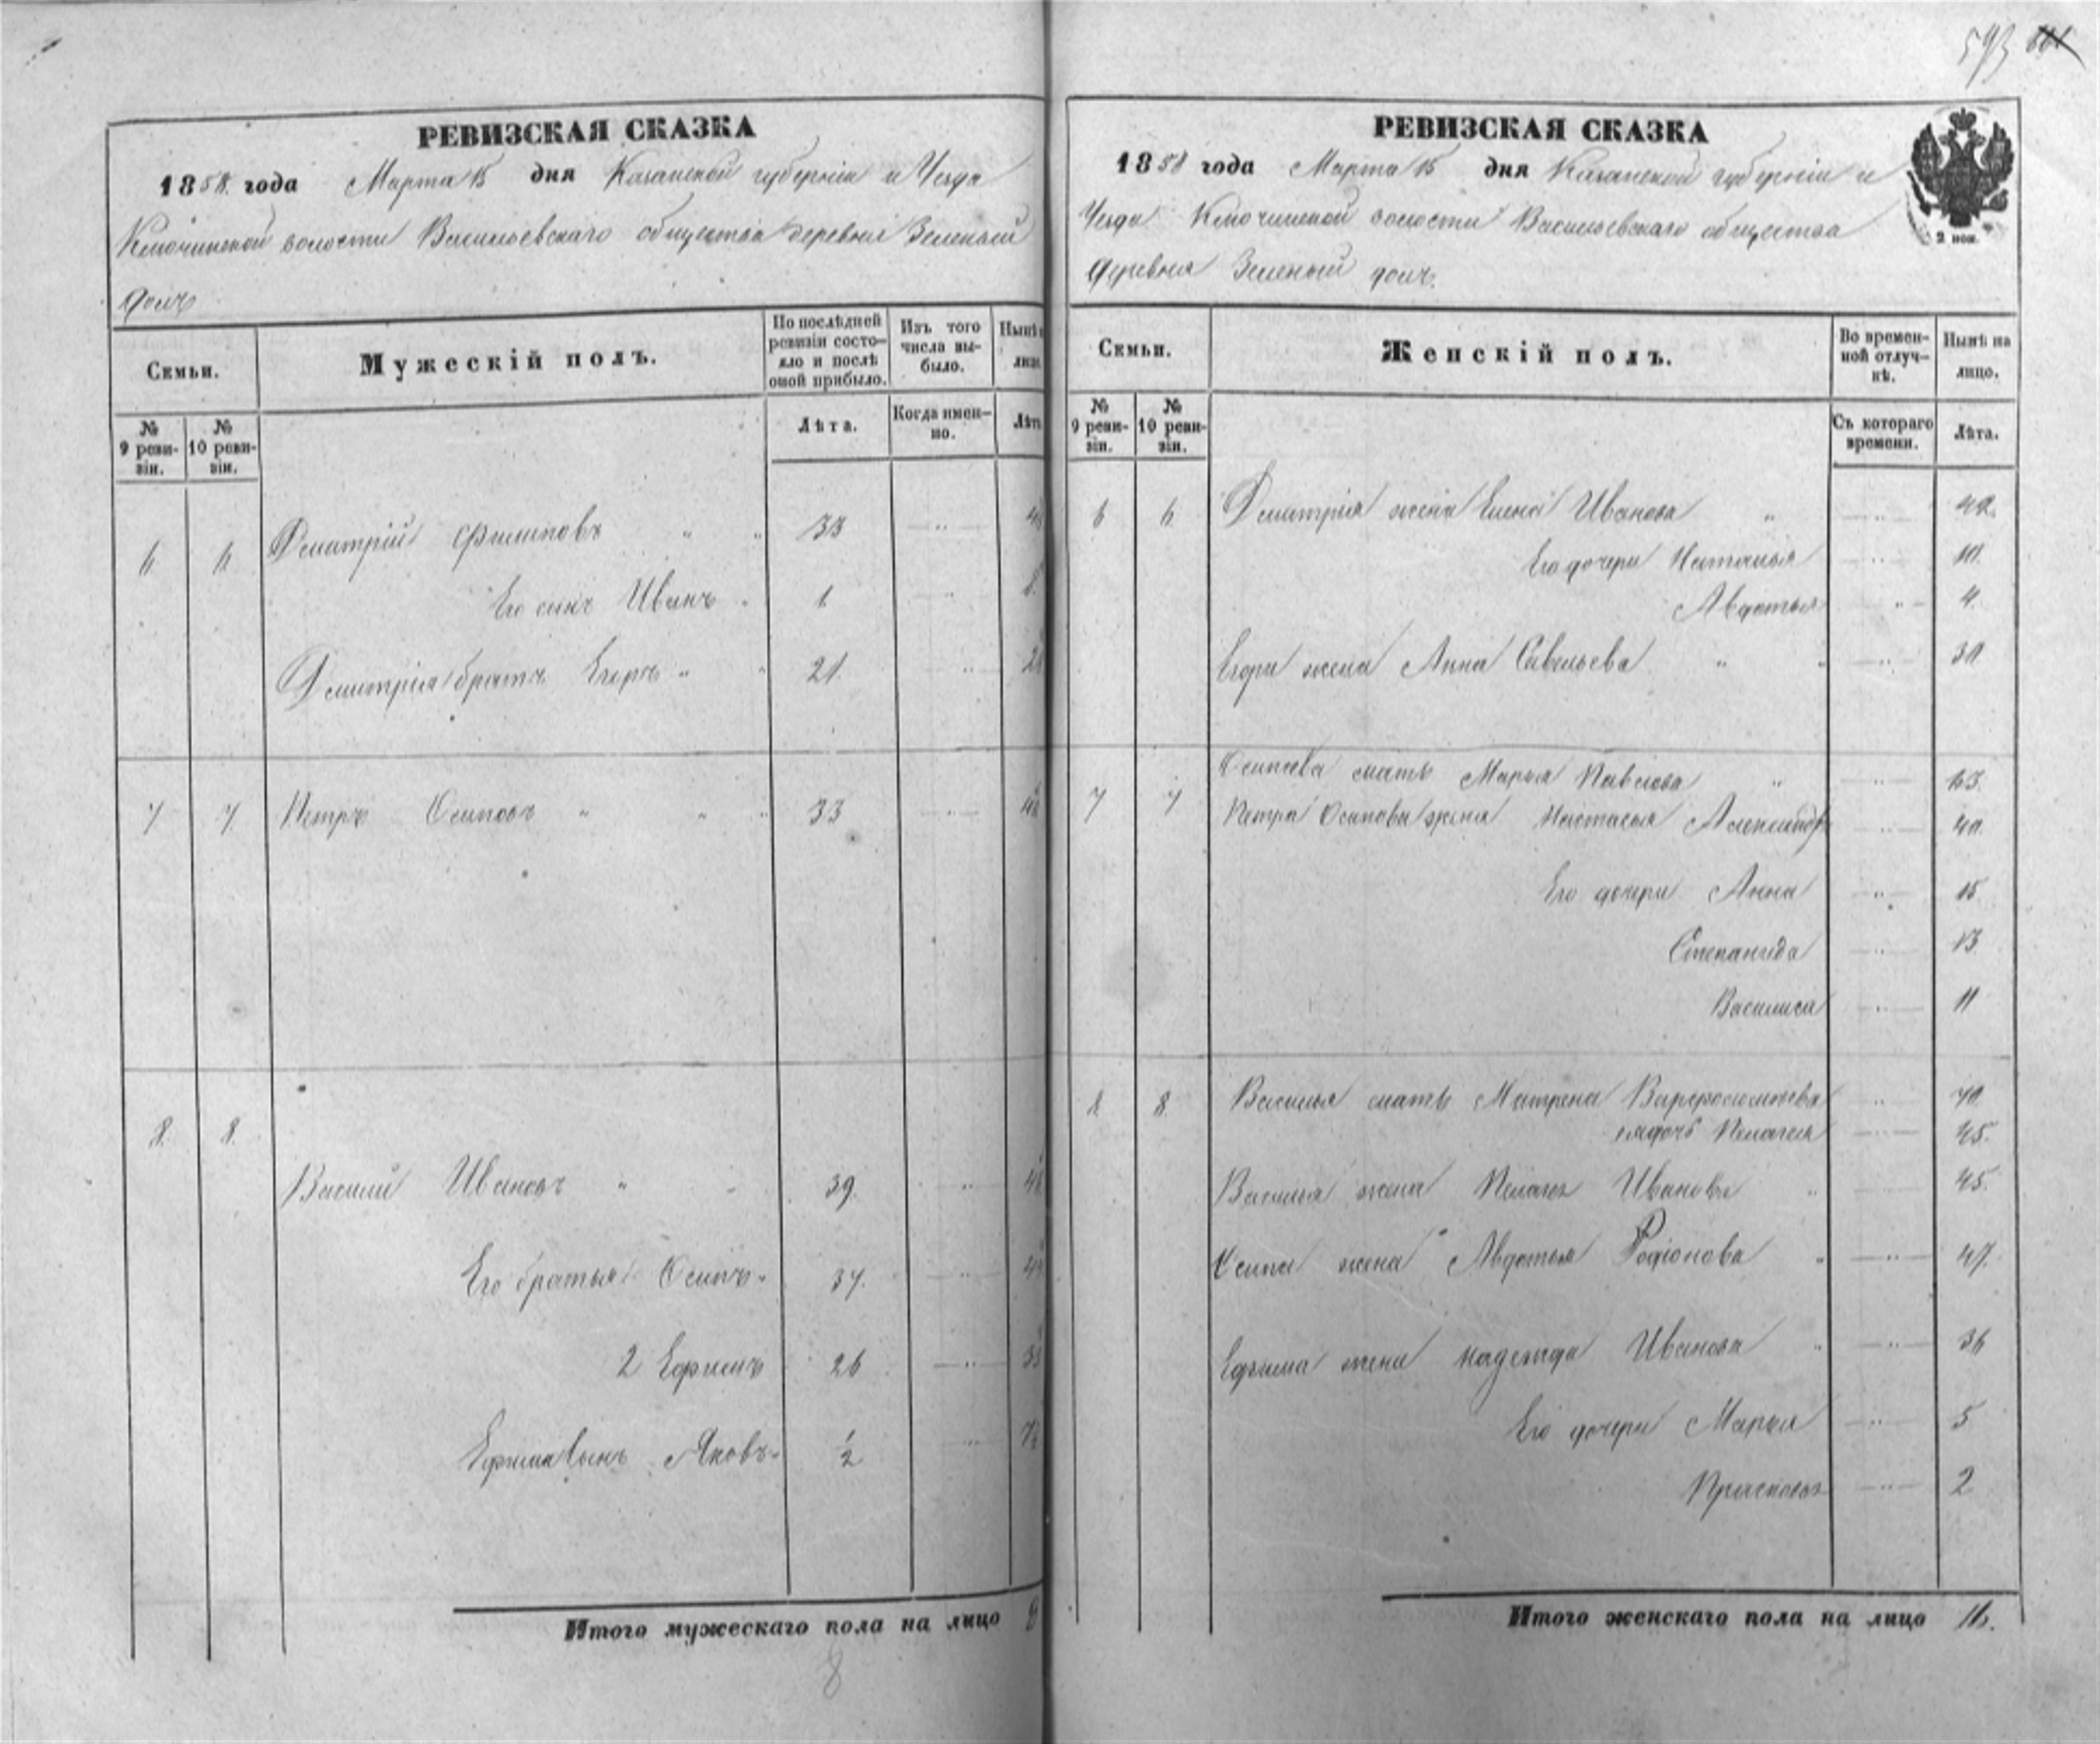 593 661
РЕВИЗСКАЯ СКАЗКА
1858 года Марта 15 дня Казанской губерніи и Уезда
Ключинской волости Васильевскаго общества деревни Зеленый
долъ
Семьи.
Мужескій полъ.
По послѣдней ревизіи состояло и послѣ оной прибыло.
Изъ того числа выбыло.
Нынѣ лицо
№ 9 ревизіи.
№ 10 ревизіи.
Лѣта.
Когда именно.
Лѣта
6 6 Дмитрій Филиповъ " " 33 "
Его сынъ Иванъ " 1 " 8
Дмитрія братъ Егоръ " " 21. "
7 7 Петръ Осиповъ " " " 33 "
8. 8.
Василий Ивановъ " " 39. "
Его братья Осипъ " 37. "
2 Ефимъ 26 "
Ефима Сынъ Яковъ " ½ "
Итого мужескаго пола на лицо 8
8
РЕВИЗСКАЯ СКАЗКА
1858 года Марта 15 дня Казанской губерніи и
Уезда Ключинской волости Васильевскаго общества
деревня Зеленый долъ.
2 коп.
Семьи.
Женскій полъ.
Во временной отлучкѣ.
Нынѣ на лицо.
№ 9 ревизіи.
№ 10 ревизіи.
Съ котораго времени.
Лѣта.
6 6 Дмитрія жена Елена Иванова " "
Его дочери Наталья " 10.
Авдотья " 4.
Егора жена Анна Савельева " " " 30
Осипова мать Марья Павлова " " 63.
7 7 Петра Осипова жена Настасья Александр " 40
Его дочери Анна " 15.
Степанида " 13
Василиса " 11
8. 8. Василья мать Матрена Варфоломеева " 70
ея дочь Пелагея " 45.
Василья жена Пелагея Иванова " 45.
Осипа жена Авдотья Родіонова " " 47.
Ефима жена Надежда Иванова " " 36
Его дочери Марья " 5
Прасковья " 2
Итого женскаго пола на лицо 16.